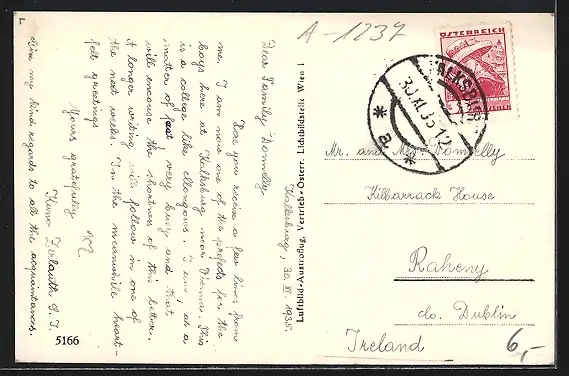 A-1237
Kalksburg, 30. XI. 1935.
Dear Family Donnelly
Here you receive a few lines from
me. I am now one of the prefects for the
boys here at Kalksburg near Vienna. This
is a college like Clongows. I am as a
matter of fact very busy and that
will excuse the shortness of this letter.
A longer writing will follow in one of
the next weeks. In the meanwhile heart-
felt greetings
Yours gratefully
Kuno S. J.
Give my kind regards to all the acquaintances.
5166
Luftbild-Austroflug, Vertrieb-Österr. Lichtbildstelle Wien 1
ÖSTERREICH
KALKSBURG
30.XI.35 12
* a *
Mr. and Mrs. Donnelly
Kilbarrack House
Raheny
Co. Dublin
Ireland
6,-